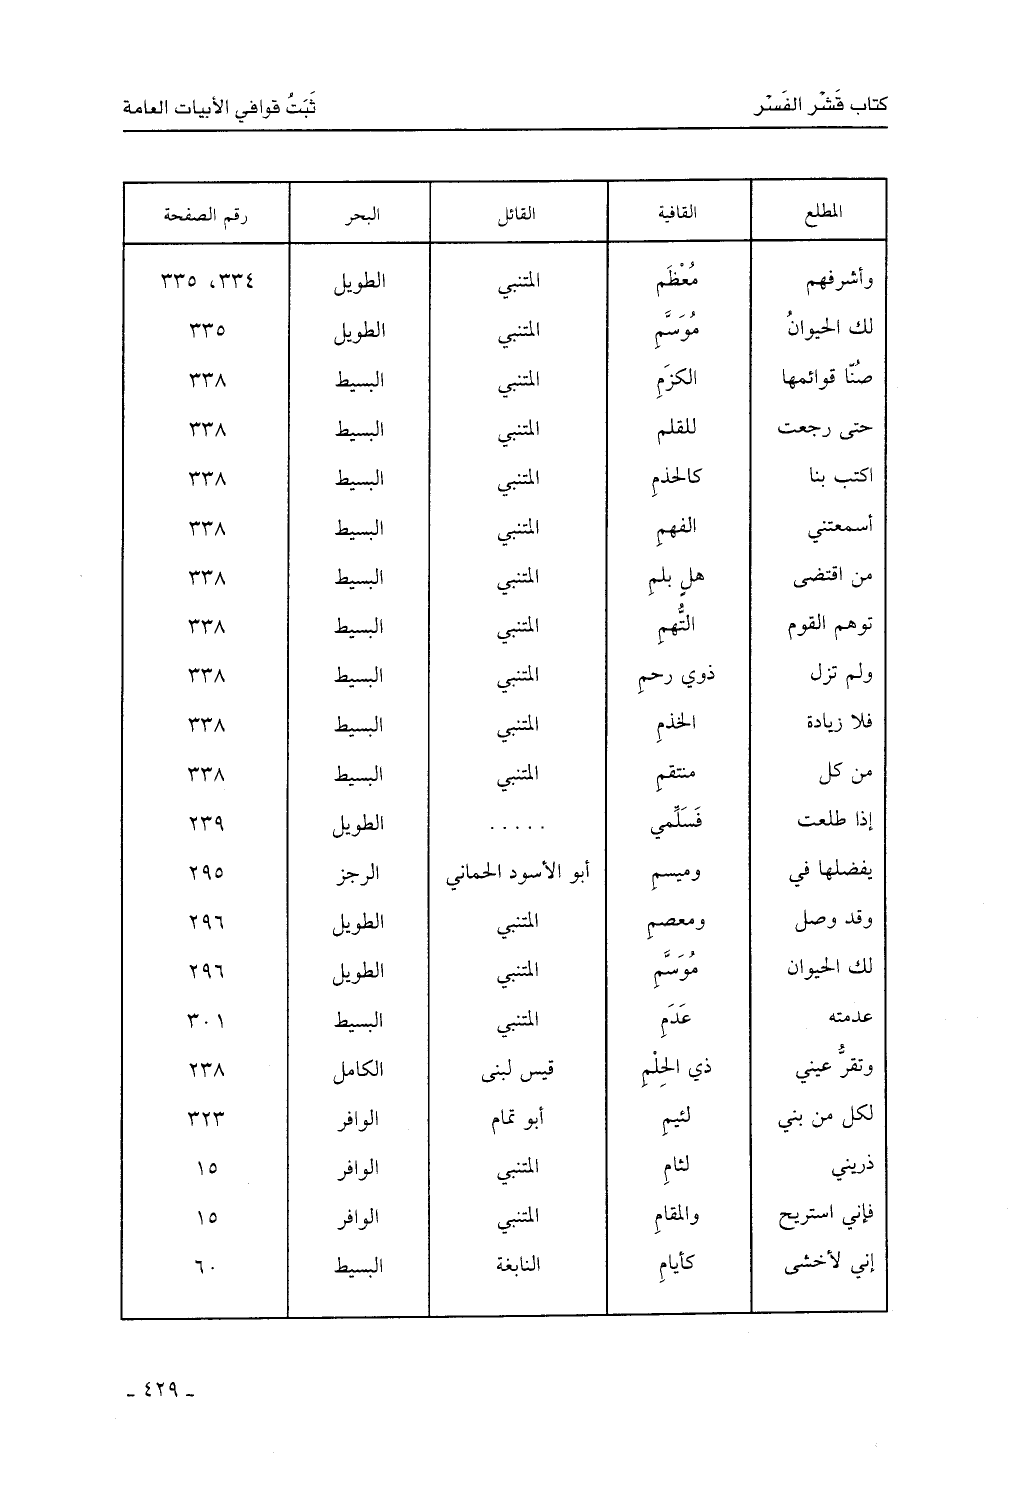 كتاب قَشْر الفَسْر ثَبَتُ قوافي الأبيات العامة
المطلع القافية القائل البحر رقم الصفحة
وأشرفهم مُعْظَمِ المتنبي الطويل ٣٣٤، ٣٣٥
لك الحيوانُ مُوَسَّمِ المتنبي الطويل ٣٣٥
صُنّا قوائمها الكزَمِ المتنبي البسيط ٣٣٨
حتى رجعت للقلم المتنبي البسيط ٣٣٨
اكتب بنا كالخذمِ المتنبي البسيط ٣٣٨
أسمعتني الفهمِ المتنبي البسيط ٣٣٨
من اقتضى هلٍ بلمِ المتنبي البسيط ٣٣٨
توهم القوم التُّهمِ المتنبي البسيط ٣٣٨
ولم تزل ذوي رحمِ المتنبي البسيط ٣٣٨
فلا زيادة الخذمِ المتنبي البسيط ٣٣٨
من كل منتقمِ المتنبي البسيط ٣٣٨
إذا طلعت فَسَلِّمي ..... الطويل ٢٣٩
يفضلها في وميسمِ أبو الأسود الحماني الرجز ٢٩٥
وقد وصل ومعصمِ المتنبي الطويل ٢٩٦
لك الحيوان مُوَسَّمِ المتنبي الطويل ٢٩٦
عدمته عَدَمِ المتنبي البسيط ٣٠١
وتقرُّ عيني ذي الحِلْمِ قيس لبنى الكامل ٢٣٨
لكل من بني لئيمِ أبو تمام الوافر ٣٢٣
ذريني لثامِ المتنبي الوافر ١٥
فإني استريح والمقامِ المتنبي الوافر ١٥
إني لأخشى كأيامِ النابغة البسيط ٦٠
ـ ٤٢٩ ـ